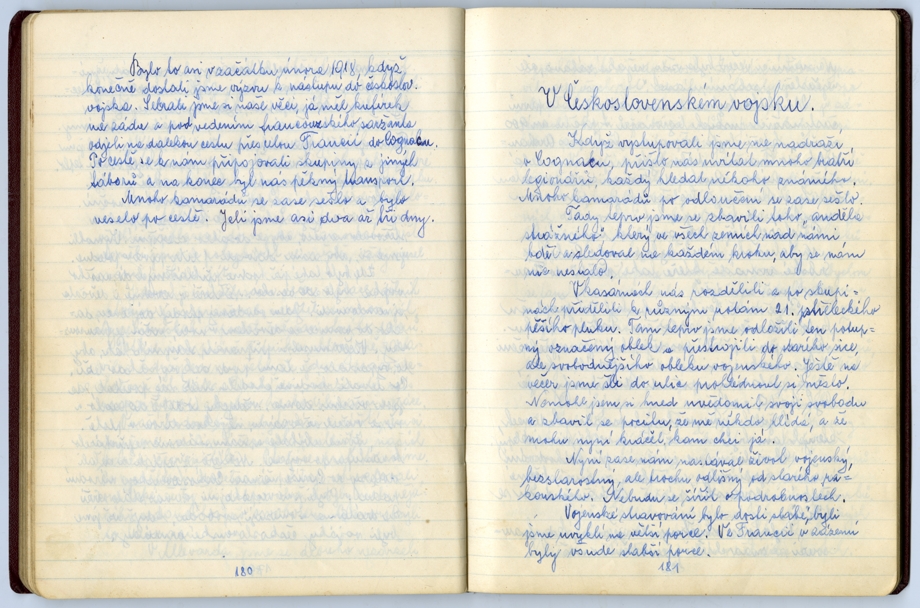 Bylo to asi v začátku února 1918, když
konečně dostali jsme výzvu k nástupu do českoslov.
vojska. Sebrali jsme si naše věci, já měl kufírek
na záda a pod vedením francouzského saržanta
odjeli na dalekou cestu přes celou Francii do Cognacu.
Po cestě se k nám připojovali skupiny z jiných
táborů a na konec byl nás pěkný transport.
Mnoho kamarádů se zase sešlo a bylo
veselo po cestě. Jeli jsme asi dva až tři dny.
180
V Československém vojsku.
Když vystupovali jsme na nádraží
v Cognacu, přišlo nás uvítat mnoho bratří
legionářů, každý hledal někoho známého.
Mnoho kamarádů po odloučení se zase sešlo.
Tady teprv jsme se zbavili toho „anděla
strážného", který ve všech zemích nad námi
bděl a sledoval na každém kroku aby se nám
nic nestalo.
V kasárnách nás rozdělili a po skupi-
nách přidělili k různým rotám 21. střeleckého
pěšího pluku. Tam teprv jsme odložili ten potup-
ný označený oblek a přestrojili do starého sice,
ale svobodnějšího obleku vojenského. Ještě na
večer jsme šli do ulic prohlédnout si město.
Nemohl jsem si hned uvědomit svoji svobodu
a zbavit se pocitu, že mě někdo hlídá, a že
mohu nyní kráčet, kam chci já.
Nyní zase nám nastával život vojenský,
bezstarostný, ale trochu odlišný od starého ra-
kouského. Nebudu se šířit o podrobnostech.
Vojenské stravování bylo dosti slabé, byli
jsme uvyklí na větší porce. Ve Francii v zázemí
byly všude slabší porce.
181